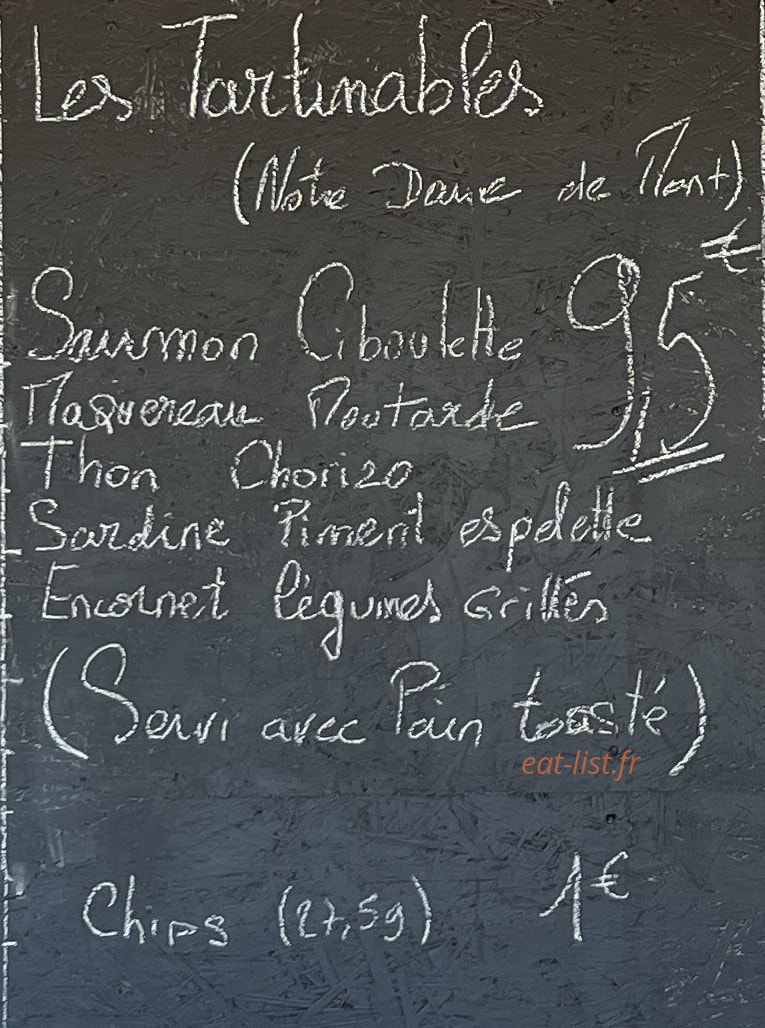 Les Tartinables
(Notre Dame de Mont)
9,5 €
Saumon Ciboulette
Maquereau Moutarde
Thon Chorizo
Sardine Piment espelette
Encornet légumes Grillés
(Servi avec Pain toasté)
eat-list.fr
Chips (27,5g) 1€